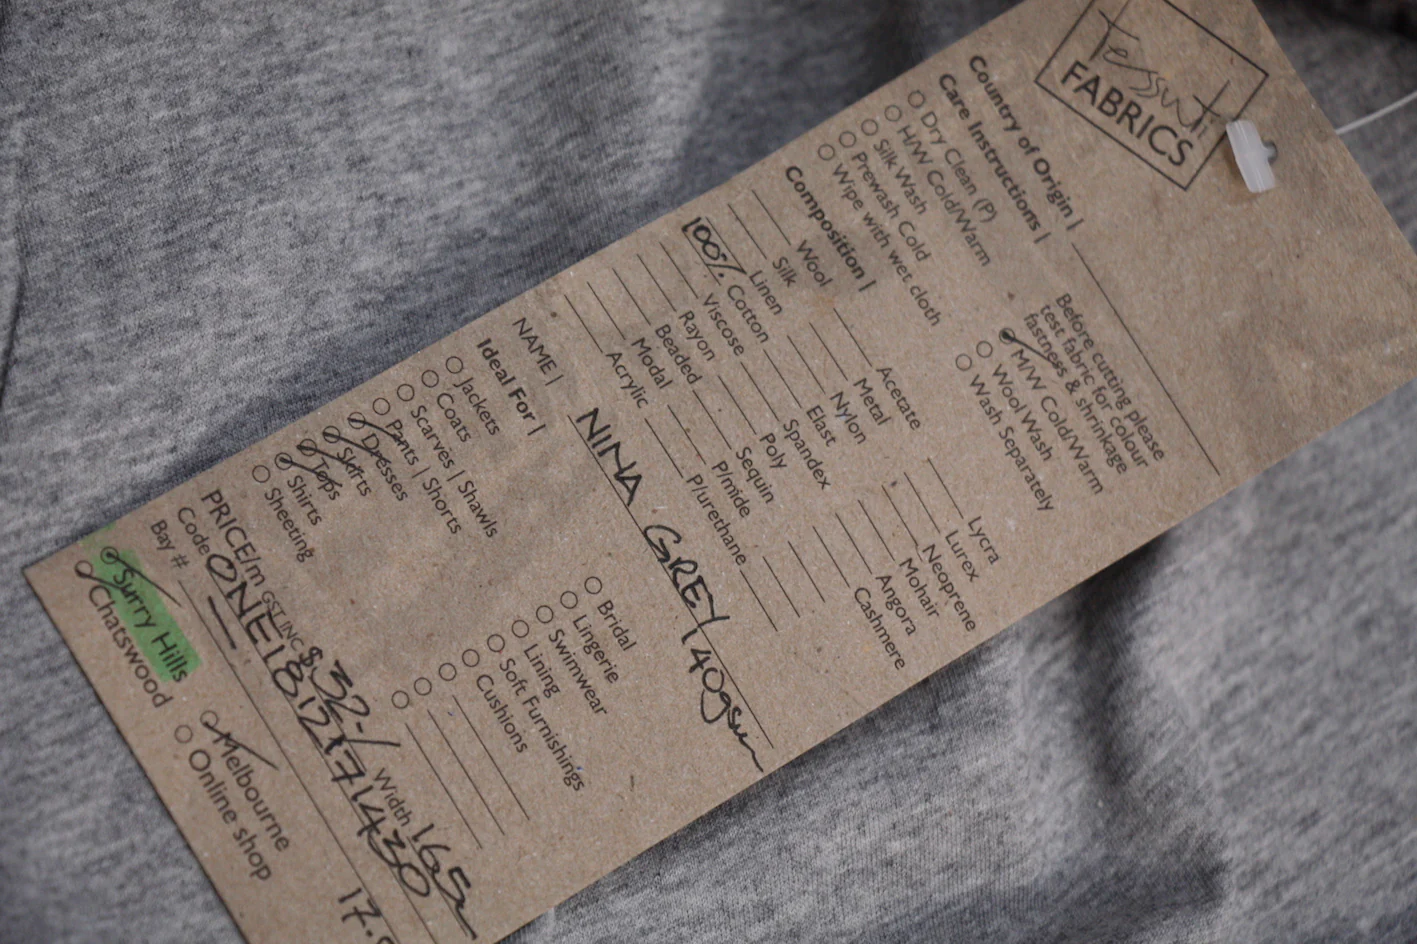 Tessuti
FABRICS
Country of Origin |
Care Instructions |
Dry Clean (P)
H/W Cold/Warm
Silk Wash
Prewash Cold
Wipe with wet cloth
Before cutting please
test fabric for colour
fastness & shrinkage
M/W Cold/Warm
Wool Wash
Wash Separately
Composition |
Wool
Silk
Linen
100% Cotton
Viscose
Rayon
Beaded
Modal
Acrylic
Acetate
Metal
Nylon
Elast
Spandex
Poly
Sequin
P/mide
P/urethane
Lycra
Lurex
Neoprene
Mohair
Angora
Cashmere
NAME | NINA GREY 140gsm
Ideal For |
Jackets
Coats
Scarves | Shawls
Pants | Shorts
Dresses
Skirts
Tops
Shirts
Sheeting
Bridal
Lingerie
Swimwear
Lining
Soft Furnishings
Cushions
PRICE/m GST INC $32-/ Width 165
Code ONE1812171430
Bay #
17.
Surry Hills
Chatswood
Melbourne
Online shop